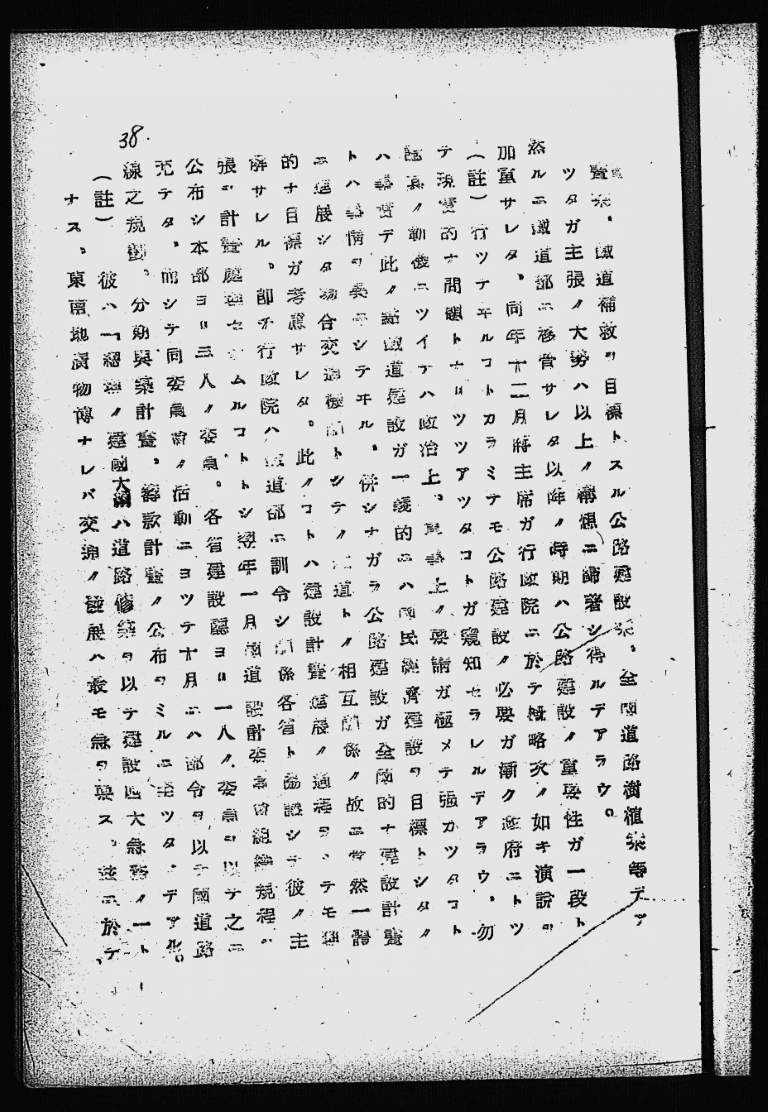 38.
覽案、國道補救ヲ目標トスル公路建設案、全國道路樹植案等デア
ツタガ主張ノ大勢ハ以上ノ構想ニ歸着シ得ルデアラウ。
然ルニ鐵道部ニ移管サレタ以降ノ時期ハ公路建設ノ重要性ガ一段ト
加重サレタ、同年十二月蔣主席ガ行政院ニ於テ概略次ノ如キ演説ヲ
(註)行ツテヰルコトカラミナモ公路建設ノ必要ガ漸ク政府ニトツ
テ現實的ナ問題トナリツツアツタコトガ窺知セラレルデアラウ、勿
論眞ノ動機ニツイテハ政治上、軍事上ノ要請ガ極メテ強カツタコト
ハ事實デ此ノ點鐵道建設ガ一義的ニハ國民經濟建設ヲ目標トシタノ
トハ事情ヲ異ニシテヰル、併シナガラ公路建設ガ全國的ナ建設計畫
ニ進展シタ場合交通機關トシテノ鐵道トノ相互關係ノ故ニ當然一體
的ナ目標ガ考慮サレタ。此ノコトハ建設計畫進展ノ過程ヲミテモ理
解サレル。卽チ行政院ハ鐵道部ニ訓令シ關係各省ト協議シテ彼ノ主
張ヲ計畫處理セシムルコトトシ翌年一月國道設計委員會組織規程ヲ
公布シ本部ヨリ三人ノ委員、各省建設廳ヨリ一人ノ委員ヲ以テ之ニ
充テタ、而シテ同委員會ノ活動ニヨツテ十月ニハ部令ヲ以テ國道路
線之規劃、分期興築計畫、籌款計畫ノ公布ヲミルニ至ツタノデアル。
(註) 彼ハ「總理ノ建國大綱ハ道路修築ヲ以テ建設四大急務ノ一ト
ナス、東南地廣物博ナレバ交通ノ發展ハ最モ急ヲ要ス、玆ニ於テ、